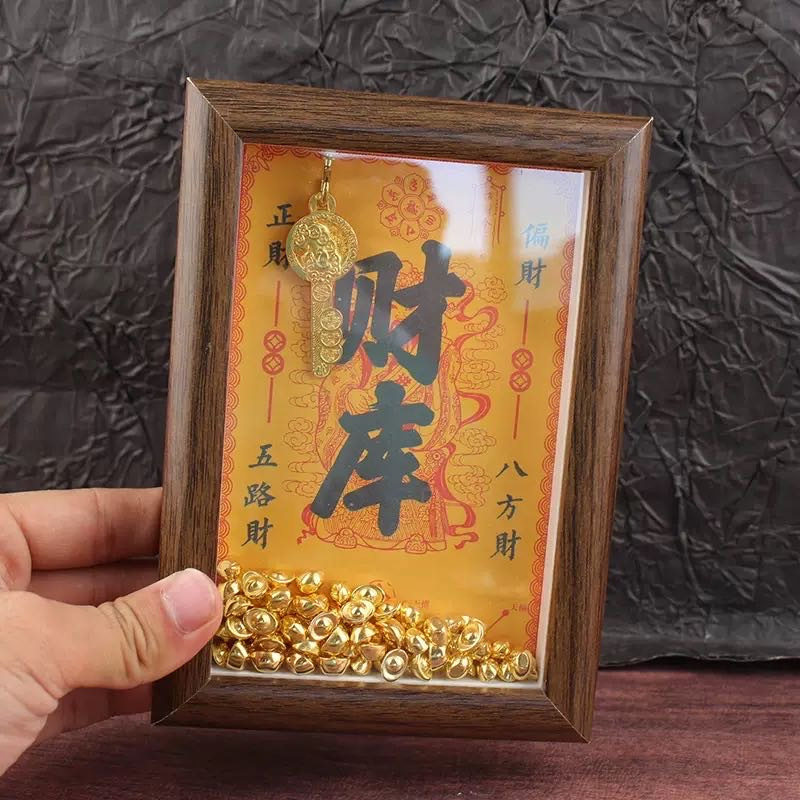 正財
偏財
财库
五路財
八方財